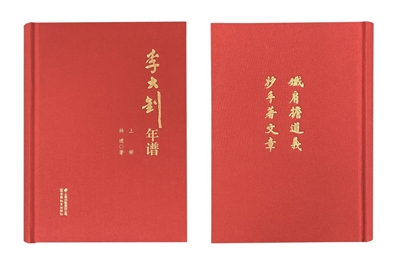 李大钊
年谱
上 册
杨 琥◎著
鐵肩擔道義
妙手著文章